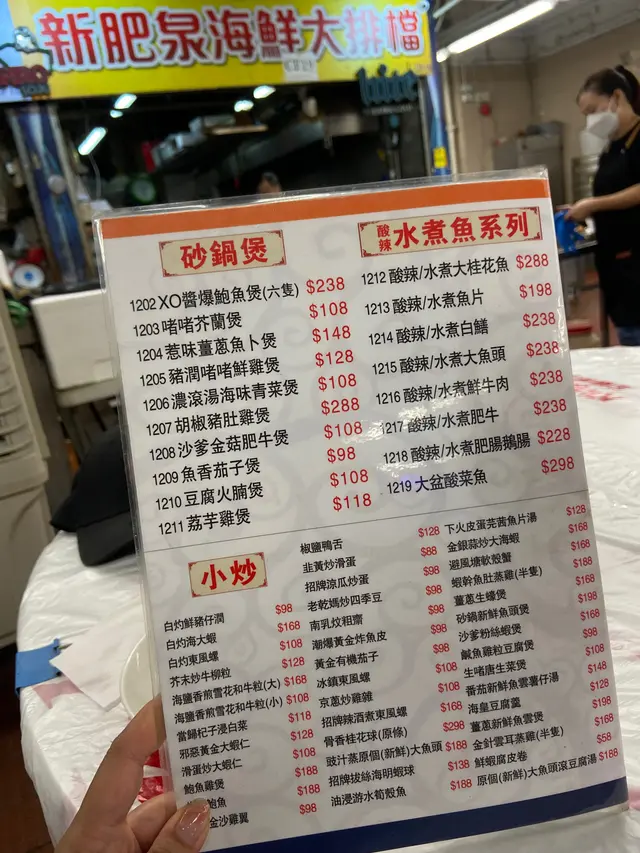 新肥泉海鮮大排檔
砂鍋煲
1202 XO醬爆鮑魚煲(六隻) $238
1203 啫啫芥蘭煲 $108
1204 惹味薑蔥魚卜煲 $148
1205 豬潤啫啫鮮雞煲 $128
1206 濃滾湯海味青菜煲 $108
1207 胡椒豬肚雞煲 $288
1208 沙爹金菇肥牛煲 $108
1209 魚香茄子煲 $98
1210 豆腐火腩煲 $108
1211 荔芋雞煲 $118
酸辣水煮魚系列
1212 酸辣/水煮大桂花魚 $288
1213 酸辣/水煮魚片 $198
1214 酸辣/水煮白鱔 $238
1215 酸辣/水煮大魚頭 $238
1216 酸辣/水煮鮮牛肉 $238
1217 酸辣/水煮肥牛 $238
1218 酸辣/水煮肥腸鵝腸 $228
1219 大盆酸菜魚 $298
小炒
白灼鮮豬仔潤 $98
白灼海大蝦 $168
白灼東風螺 $108
芥末炒牛柳粒 $128
海鹽香煎雪花和牛粒(大) $168
海鹽香煎雪花和牛粒(小) $108
當歸杞子浸白菜 $118
邪惡黃金大蝦仁 $128
滑蛋炒大蝦仁 $108
鮑魚雞煲 $188
鮑魚 $188
金沙雞翼 $98
椒鹽鴨舌 $128
韭黃炒滑蛋 $88
招牌涼瓜炒蛋 $98
老乾媽炒四季豆 $98
南乳炆粗齋 $98
潮爆黃金炸魚皮 $98
黃金有機茄子 $98
冰鎮東風螺 $108
京蔥炒雞雜 $108
招牌辣酒煮東風螺 $108
骨香桂花球(原條) $298
豉汁蒸原個(新鮮)大魚頭 $188
招牌拔絲海明蝦球 $138
油浸游水筍殼魚 $188
下火皮蛋芫茜魚片湯 $128
金銀蒜炒大海蝦 $168
避風塘軟殼蟹 $168
蝦幹魚肚蒸雞(半隻) $188
薑蔥生蠔煲 $168
砂鍋新鮮魚頭煲 $198
沙爹粉絲蝦煲 $168
鹹魚雞粒豆腐煲 $98
生啫唐生菜煲 $108
番茄新鮮魚雲薯仔湯 $148
海皇豆腐羹 $128
薑蔥新鮮魚雲煲 $198
金針雲耳蒸雞(半隻) $168
鮮蝦腐皮卷 $58
原個(新鮮)大魚頭滾豆腐湯 $188